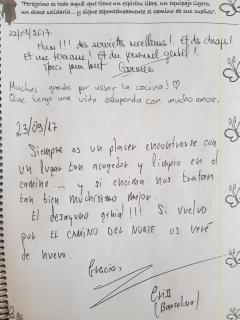 "Peregrino es todo aquél, que tiene un espíritu libre, un equipaje ligero,
un alma solidaria... y sigue espontáneamente el camino de sus sueños".
22/09/2017
Hum!!! des serviettes moelleuses! Et des draps!
Et une terrasse! Et du personnel gentil!
Merci pour tout
Muchas gracias por usar la cocina!
Que tengo una vida estupenda con mucho amor.
23/09/17
Siempre es un placer encontrarse con
un lugar tan acogedor y limpio en el
camino... y si encima nos tratan
tan bien muchísimo mejor.
El desayuno genial!!! Si vuelvo
por EL CAMINO DEL NORTE os veré
de nuevo.
Gracias,
(Barcelona)